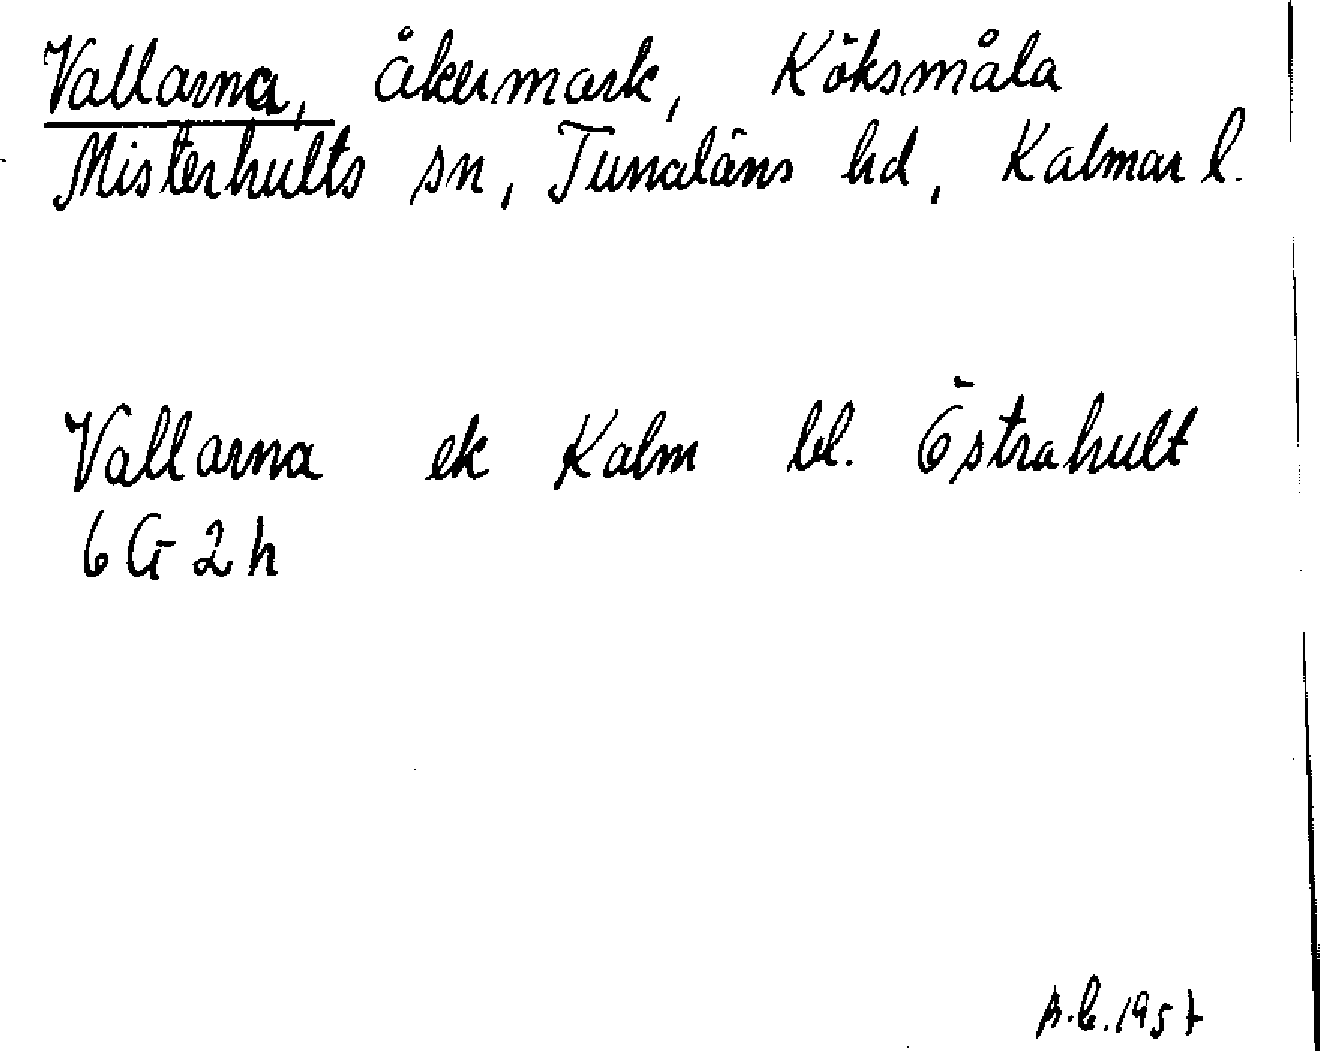 Vallarna, åkermark, Köksmåla
Misterhults sn, Tunaläns hd, Kalmar l.
Vallarna ek Kalm bl. Östrahult
6 G 2 h
1957